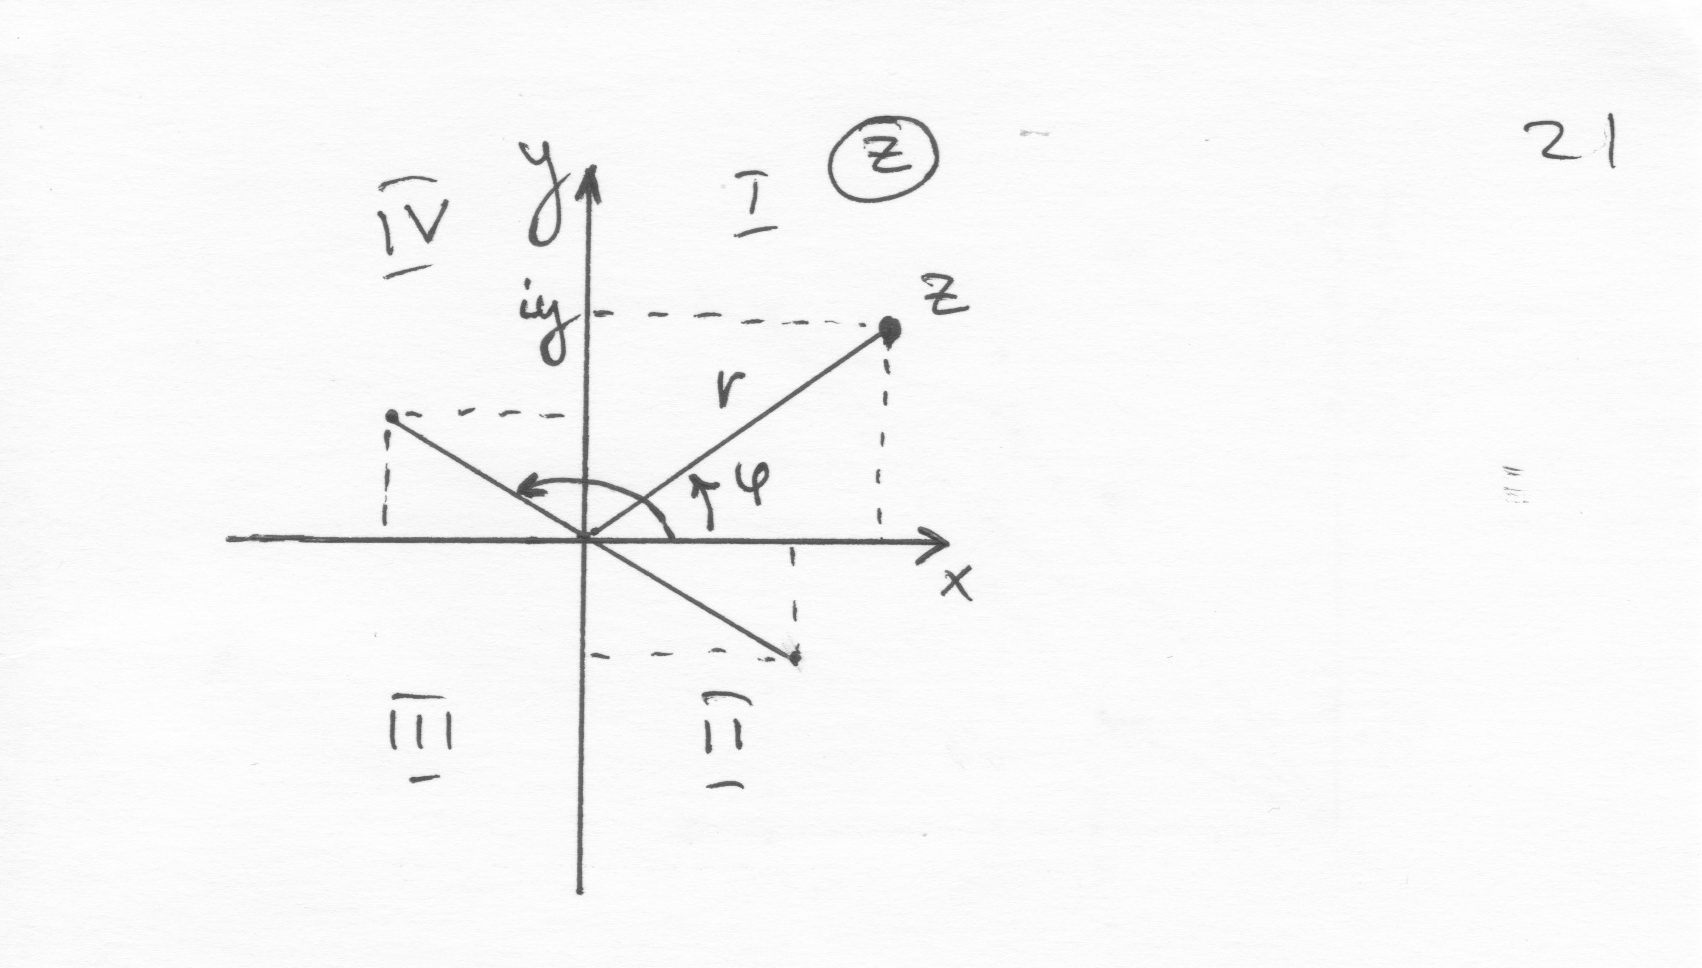 21
z
y
I
IV
iy
z
r
φ
x
III
II